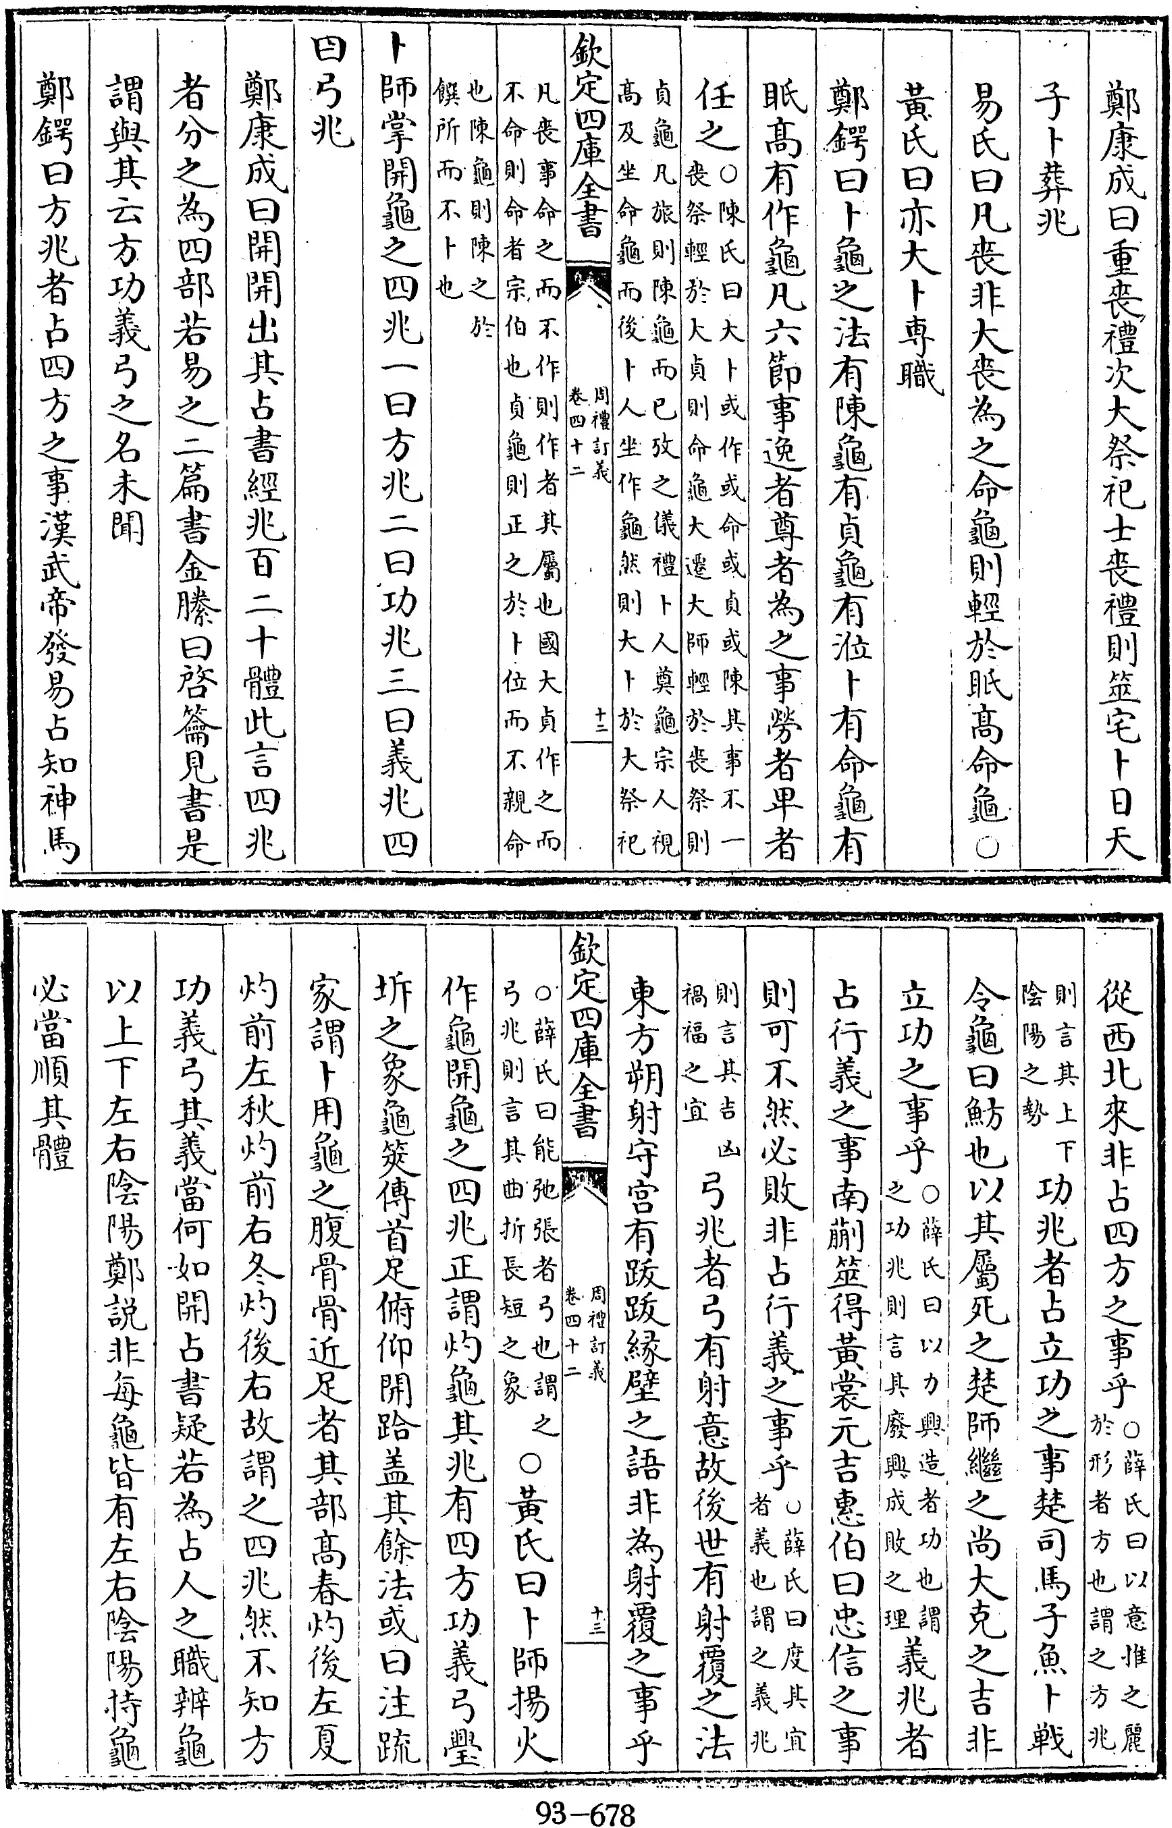 鄭康成曰重喪禮次大祭祀士喪禮則筮宅卜日天
子卜葬兆
易氏曰凡喪非大喪為之命龜則輕於眡髙命龜○
黃氏曰亦大卜専職
鄭鍔曰卜龜之法有陳龜有貞龜有涖卜有命龜有
眡髙有作龜凡六節事逸者尊者為之事勞者卑者
任之○陳氏曰大卜或作或命或貞或陳其事不一
喪祭輕於大貞則命龜大遷大師輕於喪祭則
貞龜凡旅則陳龜而已攷之儀禮卜人奠龜宗人視
髙及坐命龜而後卜人坐作龜然則大卜於大祭祀
欽定四庫全書
周禮訂義
卷四十二
十三
凡喪事命之而不作則作者其屬也國大貞作之而
不命則命者宗伯也貞龜則正之於卜位而不親命
也陳龜則陳之於
饌所而不卜也
卜師掌開龜之四兆一曰方兆二曰功兆三曰義兆四
曰弓兆
鄭康成曰開開出其占書經兆百二十體此言四兆
者分之為四部若易之二篇書金縢曰啓籥見書是
謂與其云方功義弓之名未聞
鄭鍔曰方兆者占四方之事漢武帝發易占知神馬
從西北來非占四方之事乎○薛氏曰以意惟之麗
於形者方也謂之方兆
則言其上下
陰陽之勢
功兆者占立功之事楚司馬子魚卜戰
令龜曰魴也以其屬死之楚師繼之尚大克之吉非
立功之事乎○薛氏曰以力興造者功也謂
之功兆則言其廢興成敗之理
義兆者
占行義之事南蒯筮得黃裳元吉惠伯曰忠信之事
則可不然必敗非占行義之事乎○薛氏曰度其宜
者義也謂之義兆
則言其吉凶
禍福之宜
弓兆者弓有射意故後世有射覆之法
東方朔射守宮有跂跂縁壁之語非為射覆之事乎
欽定四庫全書
周禮訂義
卷四十二
十三
○薛氏曰能弛張者弓也謂之
弓兆則言其曲折長短之象
○黃氏曰卜師揚火
作龜開龜之四兆正謂灼龜其兆有四方功義弓璺
坼之象龜筴傳首足俯仰開跲盖其餘法或曰注疏
家謂卜用龜之腹骨骨近足者其部髙春灼後左夏
灼前左秋灼前右冬灼後右故謂之四兆然不知方
功義弓其義當何如開占書疑若為占人之職辨龜
以上下左右陰陽鄭説非每龜皆有左右陰陽持龜
必當順其體
93-678